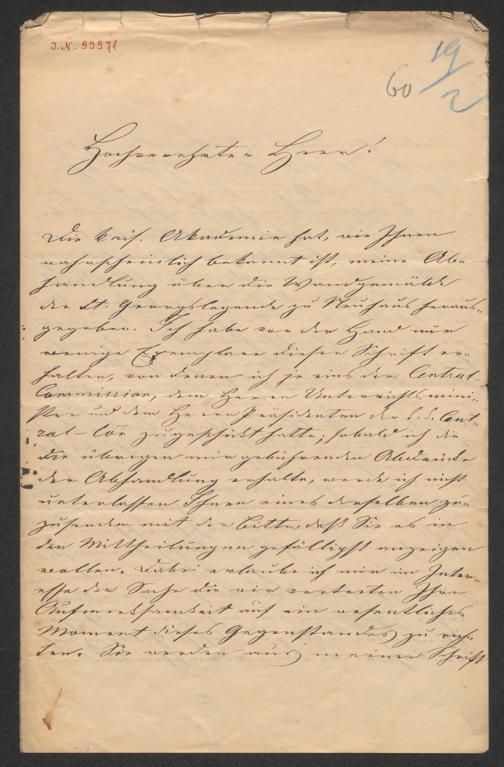 J.N. 99971
60 19/2
Hochverehrter Herr!
Die kais. Akademie hat, wie Ihnen
wahrscheinlich bekannt ist, meine Ab-
handlung über die Wandgemälde
der St. Georgslegende zu Neuhaus heraus-
gegeben. Ich habe vor der Hand nur
wenige Exemplare dieser Schrift er-
halten, von denen ich je eins der Central-
Commission, dem Herrn Unterrichtsmini-
ster und dem Herrn Präsidenten der k.k. Cent-
ral-Con zugeschickt hatte; sobald ich die
die übrigen mir gebührenden Abdrücke
der Abhandlung erhalte, werde ich nicht
unterlassen Ihnen eines derselben zu-
zusenden mit der Bitte, daß Sie es in
den Mittheilungen gefälligst anzeigen
wollen. Dabei erlaube ich mir im Inter-
esse der Sache die wir vertreten Ihre
Aufmerksamkeit auf ein wesentliches
Moment dieses Gegenstandes zu rich-
ten. Sie werden aus meiner Schrift